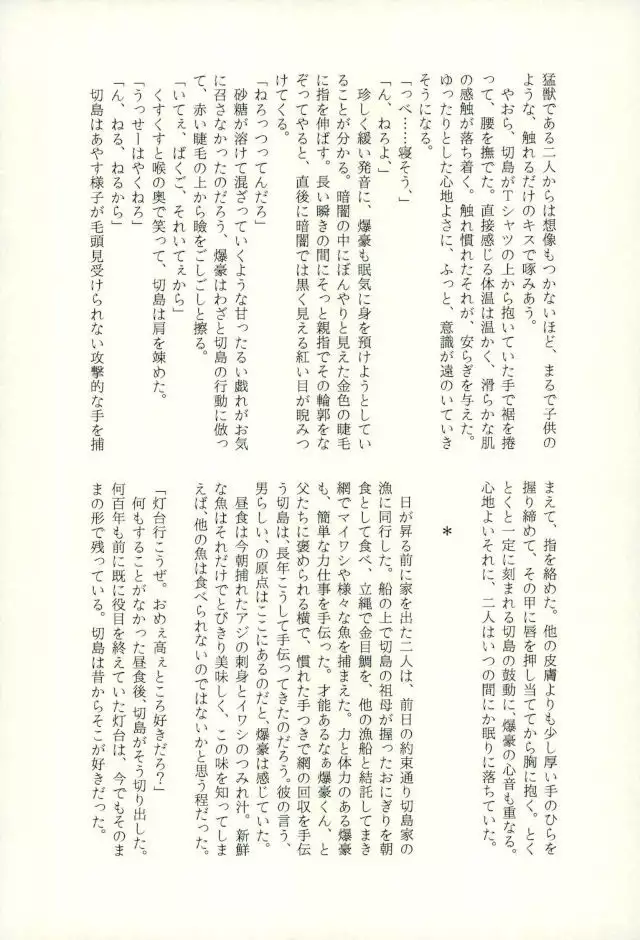 猛獣である二人からは想像もつかないほど、まるで子供の
ような、触れるだけのキスで啄みあう。
やおら、切島がTシャツの上から抱いていた手で裾を捲
って、腰を撫でた。直接感じる体温は温かく、滑らかな肌
の感触が落ち着く。触れ慣れたそれが、安らぎを与えた。
ゆったりとした心地よさに、ふっと、意識が遠のいていき
そうになる。
「っべ……寝そう、」
「ん、ねろよ、」
珍しく緩い発音に、爆豪も眠気に身を預けようとしてい
ることが分かる。暗闇の中にぼんやりと見えた金色の睫毛
に指を伸ばす。長い瞬きの間にそっと親指でその輪郭をな
ぞってやると、直後に暗闇では黒く見える紅い目が睨みつ
けてくる。
「ねろっつってんだろ」
砂糖が溶けて混ざっていくような甘ったるい戯れがお気
に召さなかったのだろう、爆豪はわざと切島の行動に倣っ
て、赤い睫毛の上から瞼をごしごしと擦る。
「いてぇ、ばくご、それいてぇから」
くすくすと喉の奥で笑って、切島は肩を竦めた。
「うっせーはやくねろ」
「ん、ねる、ねるから」
切島はあやす様子が毛頭見受けられない攻撃的な手を捕
まえて、指を絡めた。他の皮膚よりも少し厚い手のひらを
握り締めて、その甲に唇を押し当ててから胸に抱く。とく
とくと一定に刻まれる切島の鼓動に、爆豪の心音も重なる。
心地よいそれに、二人はいつの間にか眠りに落ちていた。
*
日が昇る前に家を出た二人は、前日の約束通り切島家の
漁に同行した。船の上で切島の祖母が握ったおにぎりを朝
食として食べ、立縄で金目鯛を、他の漁船と結託してまき
網でマイワシや様々な魚を捕まえた。力と体力のある爆豪
も、簡単な力仕事を手伝った。才能あるなぁ爆豪くん、と
父たちに褒められる横で、慣れた手つきで網の回収を手伝
う切島は、長年こうして手伝ってきたのだろう。彼の言う、
男らしい、の原点はここにあるのだと、爆豪は感じていた。
昼食は今朝捕れたアジの刺身とイワシのつみれ汁。新鮮
な魚はそれだけでとびきり美味しく、この味を知ってしま
えば、他の魚は食べられないのではないかと思う程だった。
「灯台行こうぜ。おめぇ高ぇところ好きだろ？」
何もすることがなかった昼食後、切島がそう切り出した。
何百年も前に既に役目を終えていた灯台は、今でもそのま
まの形で残っている。切島は昔からそこが好きだった。